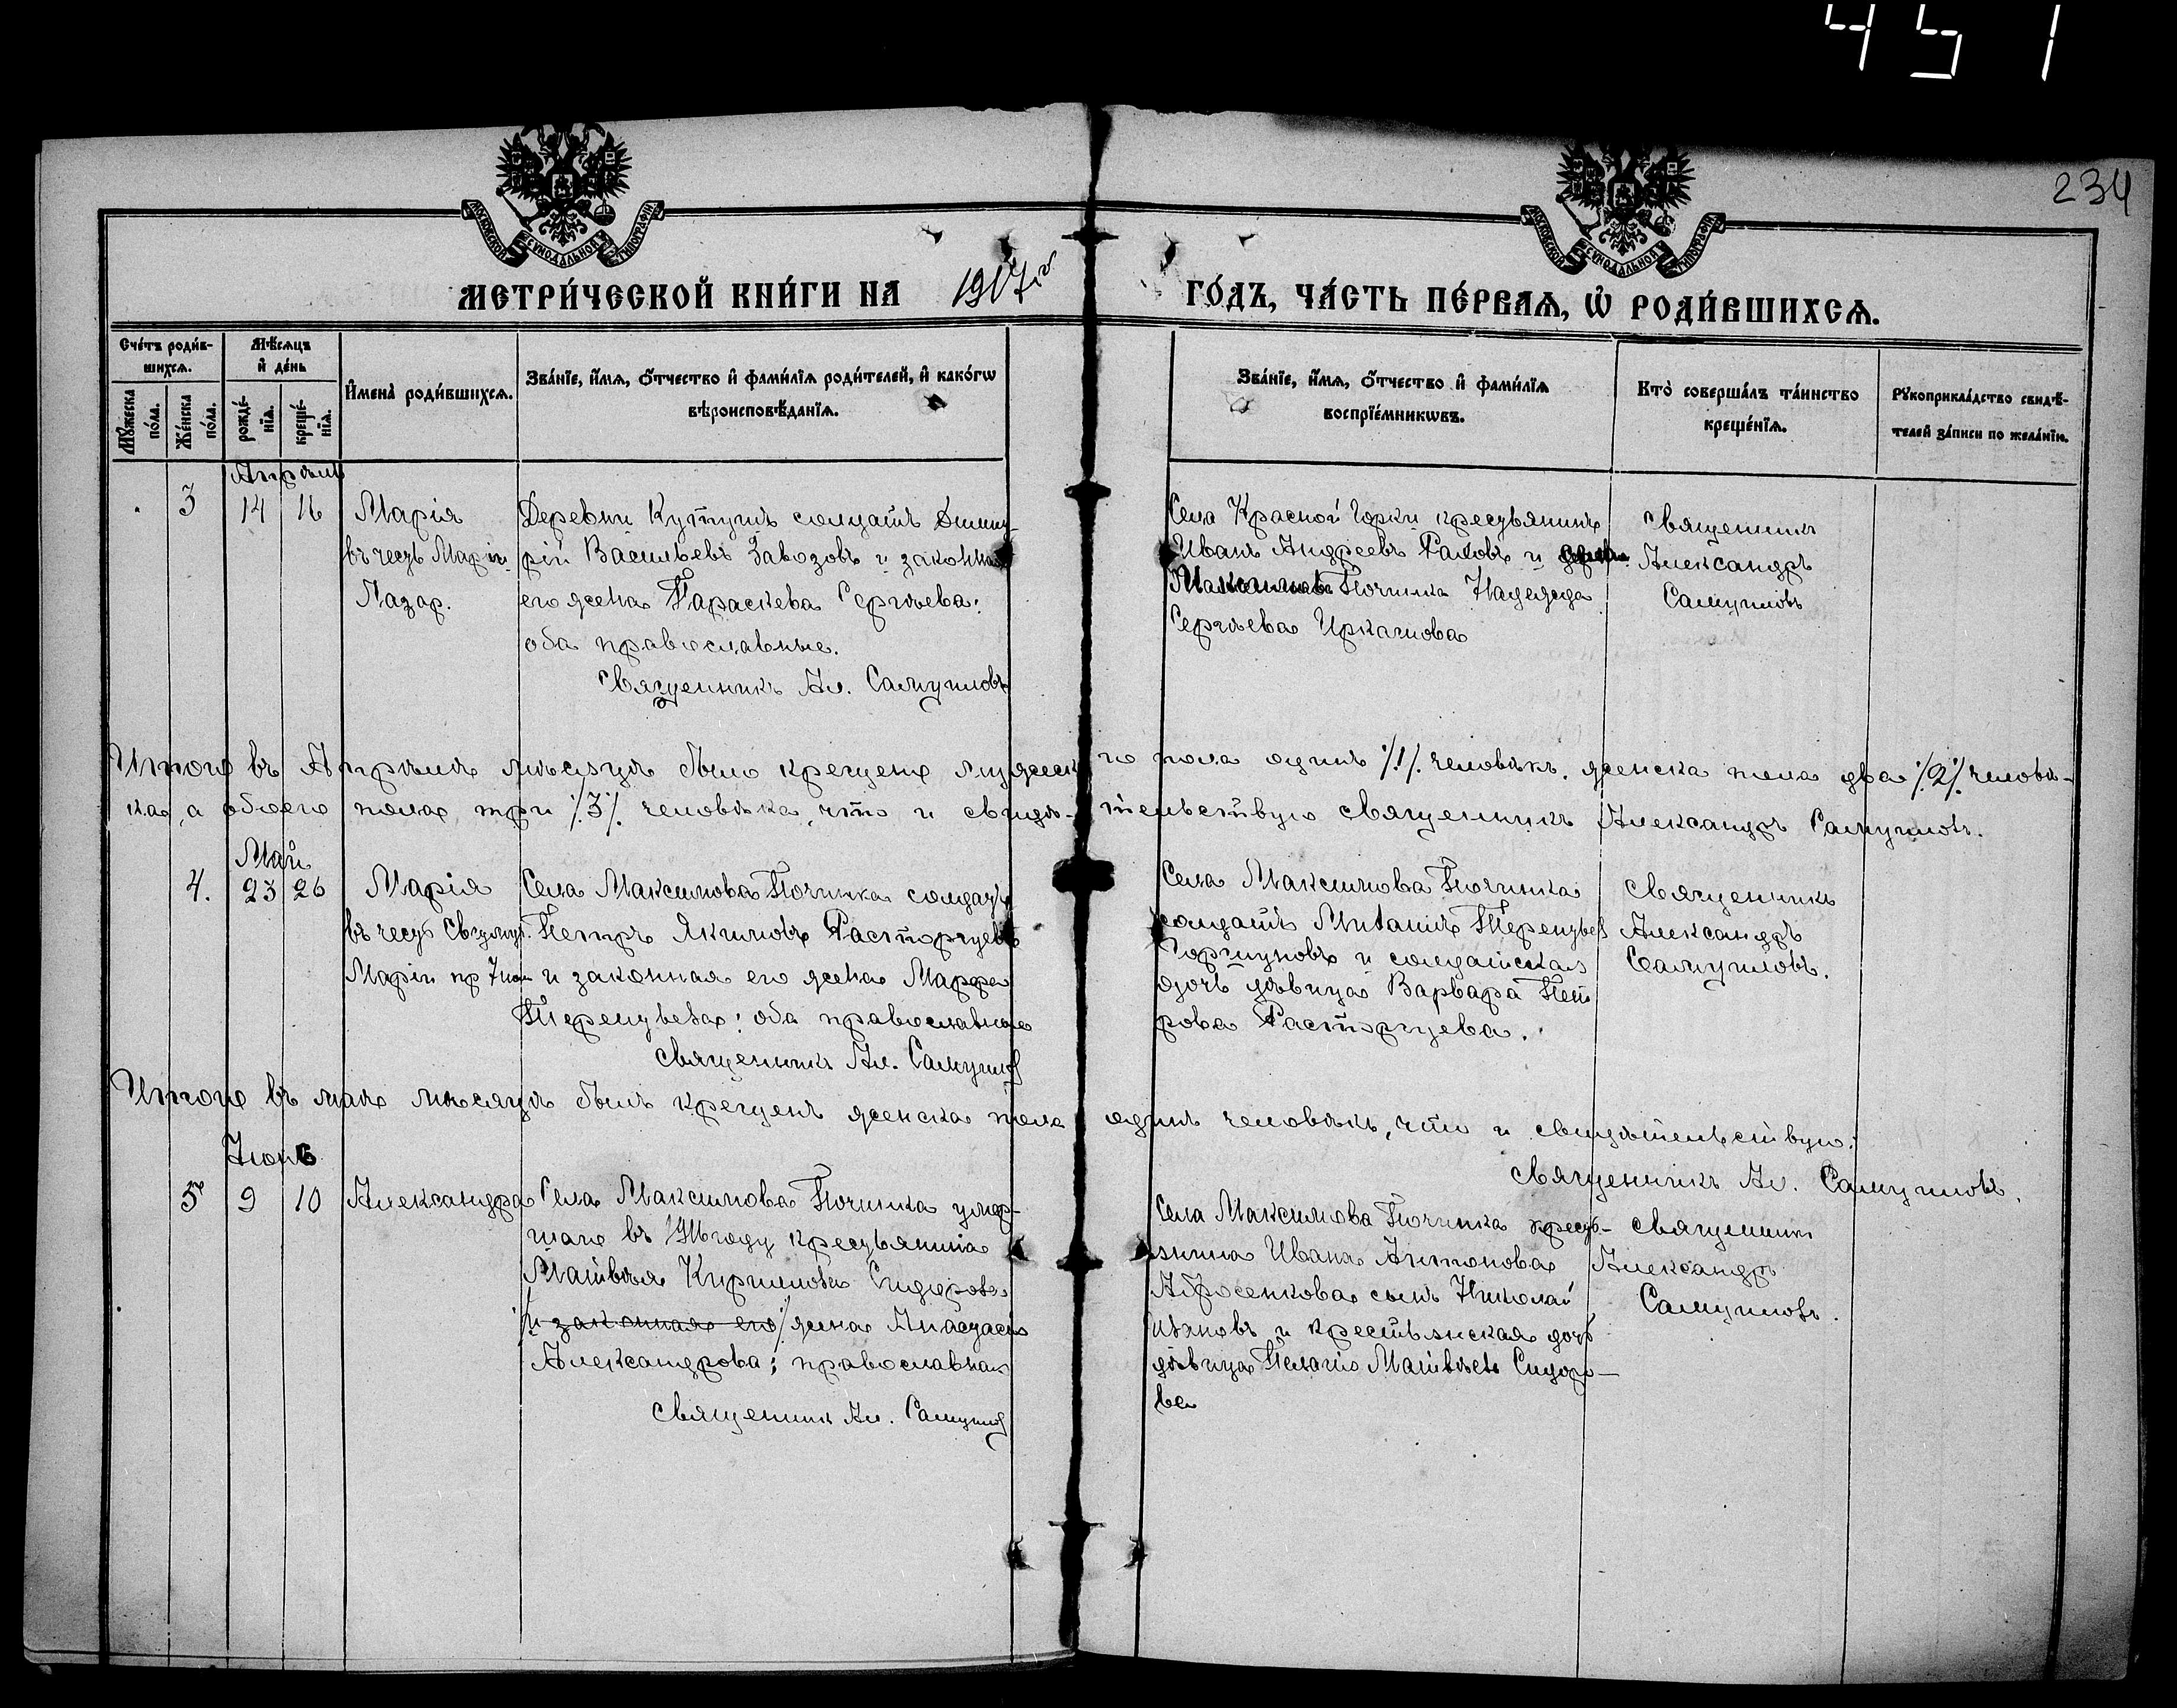 451
234
МОСКОВСКОЙ СУНОДАЛЬНОЙ ТИПОГРАФІИ
МОСКОВСКОЙ СУНОДАЛЬНОЙ ТИПОГРАФІИ
МЕТРИ́ЧЕСКОЙ КНИ́ГИ НА 1917 г. ГО́ДЪ, ЧА́СТЬ ПЕ́РВАѦ, Ѡ҆ РОДИ́ВШИХСѦ.
Сче́тъ роди́в-
шихсѧ.
Мѣ́сѧцъ
и҆ де́нь
Мꙋ́жеска
по́ла.
Же́нска
по́ла.
рожде́-
нїѧ.
креще́-
нїѧ.
И҆мена̀ роди́вшихсѧ.
Зва́нїе, и҆́мѧ, ѻ҆́тчество и҆ фами́лїѧ роди́телей, и҆ како́гѡ
вѣроисповѣ́данїѧ.
Зва́нїе, и҆́мѧ, ѻ҆́тчество и҆ фами́лїѧ
воспрїе́мникѡвъ.
Кто̀ соверша́лъ та́инство
креще́нїѧ.
Рꙋкоприкла́дство свидѣ́-
телей за́писи по жела́нїю.
Апрѣль
3 14 16 Марія
въ честь Маріи
Лазар.
Деревни Кутушъ солдатъ Димит-
рій Васильевъ Завозовъ и законная
его жена Параскева Сергѣева:
оба православные.
Священникъ Ал. Самуиловъ
Села Красной Горки крестьянинъ
Иванъ Андреевъ и
Максимова Починка Надежда
Сергѣева
Священникъ
Александръ
Самуиловъ
Итого въ Апрѣлѣ мѣсяцѣ было крещено мужского пола одинъ /1/ человѣкъ, женска пола два /2/ человѣ-
ка, а обоего пола три /3/ человѣка, что и свидѣ- тельствую священникъ Александръ Самуиловъ.
Май
4. 23 26 Марія
въ честь
Маріи
Села Максимова Починка солдатъ
Петръ Якимовъ Расторгуевъ
и законная его жена Марфа
Терентьева: оба православные
Священникъ Ал. Самуилов
Села Максимова Починка
солдатъ Терентьев
Горшуновъ и солдатская
дочь дѣвица Варвара Пет
рова Расторгуева.
Священникъ
Александръ
Самуиловъ.
Итого въ маѣ мѣсяцѣ былъ крещенъ женска пола одинъ человѣкъ, что и свидѣтельствую:
священникъ Ал. Самуиловъ.
Іюнь
5 9 10 Александра
Села Максимова Починка умер-
шаго въ году крестьянина
Матвѣя Кириллова Сидорова
/и законная его/ жена Анастасія
Александрова; православная
Священникъ Ал. Самуилов
Села Максимова Починка кресть-
янина Ивана Антонова
Абросенкова сынъ Николай
Ивановъ и крестьянская дочь
дѣвица Пелагія Матвѣева Сидоро-
ва
Священникъ
Александръ
Самуиловъ.